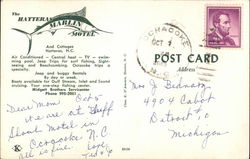 The
HATTERAS
MARLIN
MOTEL
And Cottages
Hatteras, N.C.
Air Conditioned - Central heat - TV - swim-
ming pool. Jeep Trips for surf fishing, Sight-
seeing and Beachcombing. Ocracoke trips a
specialty.
Jeep and buggy Rentals
By day or week.
Boats available for Gulf Stream, Inlet and Sound
fishing. Your one-stop fishing headquarters.
Midgett Brothers Serviceenter
Phone 995-2001
OCRACOKE
OCT
N.C.
POST CARD
Address
Dear Mom Oct 5
we are at
Motel in
Ocracoke N.C.
Mrs J
4904 Cabot
Detroit 10
Michigan